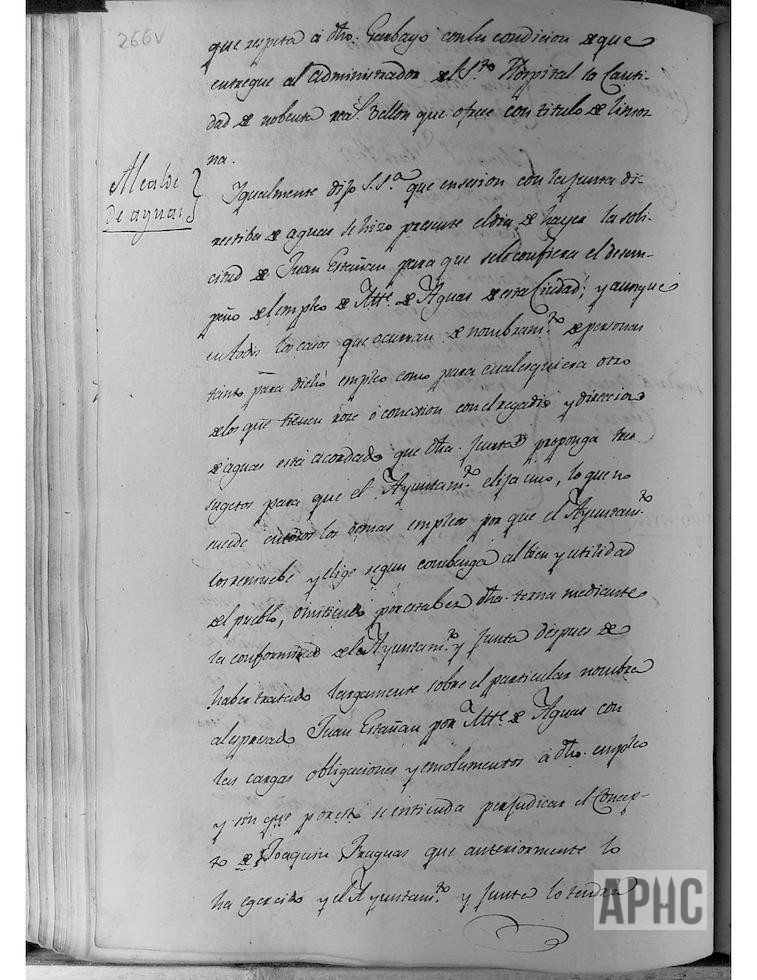 266V
que respeta á dho. Garbayo con la condicion de que
entregue al Administrador del S.to Hospital la Canti-
dad de nobenta rea.s Vellon que ofrece con titulo de limos
na.
Alcalde
de aguas
Igualmente dijo S.S.a que en sesion con la Junta di-
rectiba de aguas se hizo presente el dia de hayer la soli
citud de Juan Estañan para que se le confiera el desem-
peño del empleo de Altt.e de Aguas de esta Ciudad; y aunque
en todos los casos que ocurran de nombram.to de personas
tanto para dicho empleo como para cualesquiera otro
de los que tienen roze ó conexion con el regadio y direccion
de aguas está acordado que dha. Junta proponga tres
sugetos para que el Ayuntam.to elija uno, lo que no
sucede en todos los demas empleos por que el Ayuntam.to
los remuebe y elige segun combenga al bien y utilidad
del pueblo, omitiendo por esta bez dha. terna mediante
la conformidad de la Ayuntam.to y Junta despues de
haber tratado largamente sobre el particular nombra
al expresado Juan Estañan por Altt.e de Aguas con
las cargas obligaciones y emolumentos á dho. empleo
y sin que por esto se entienda perjudicar el Concep-
to de Joaquin Fraguas que anteriormente lo
ha egercido y el Ayuntam.to y Junta lo tendrá
APHC